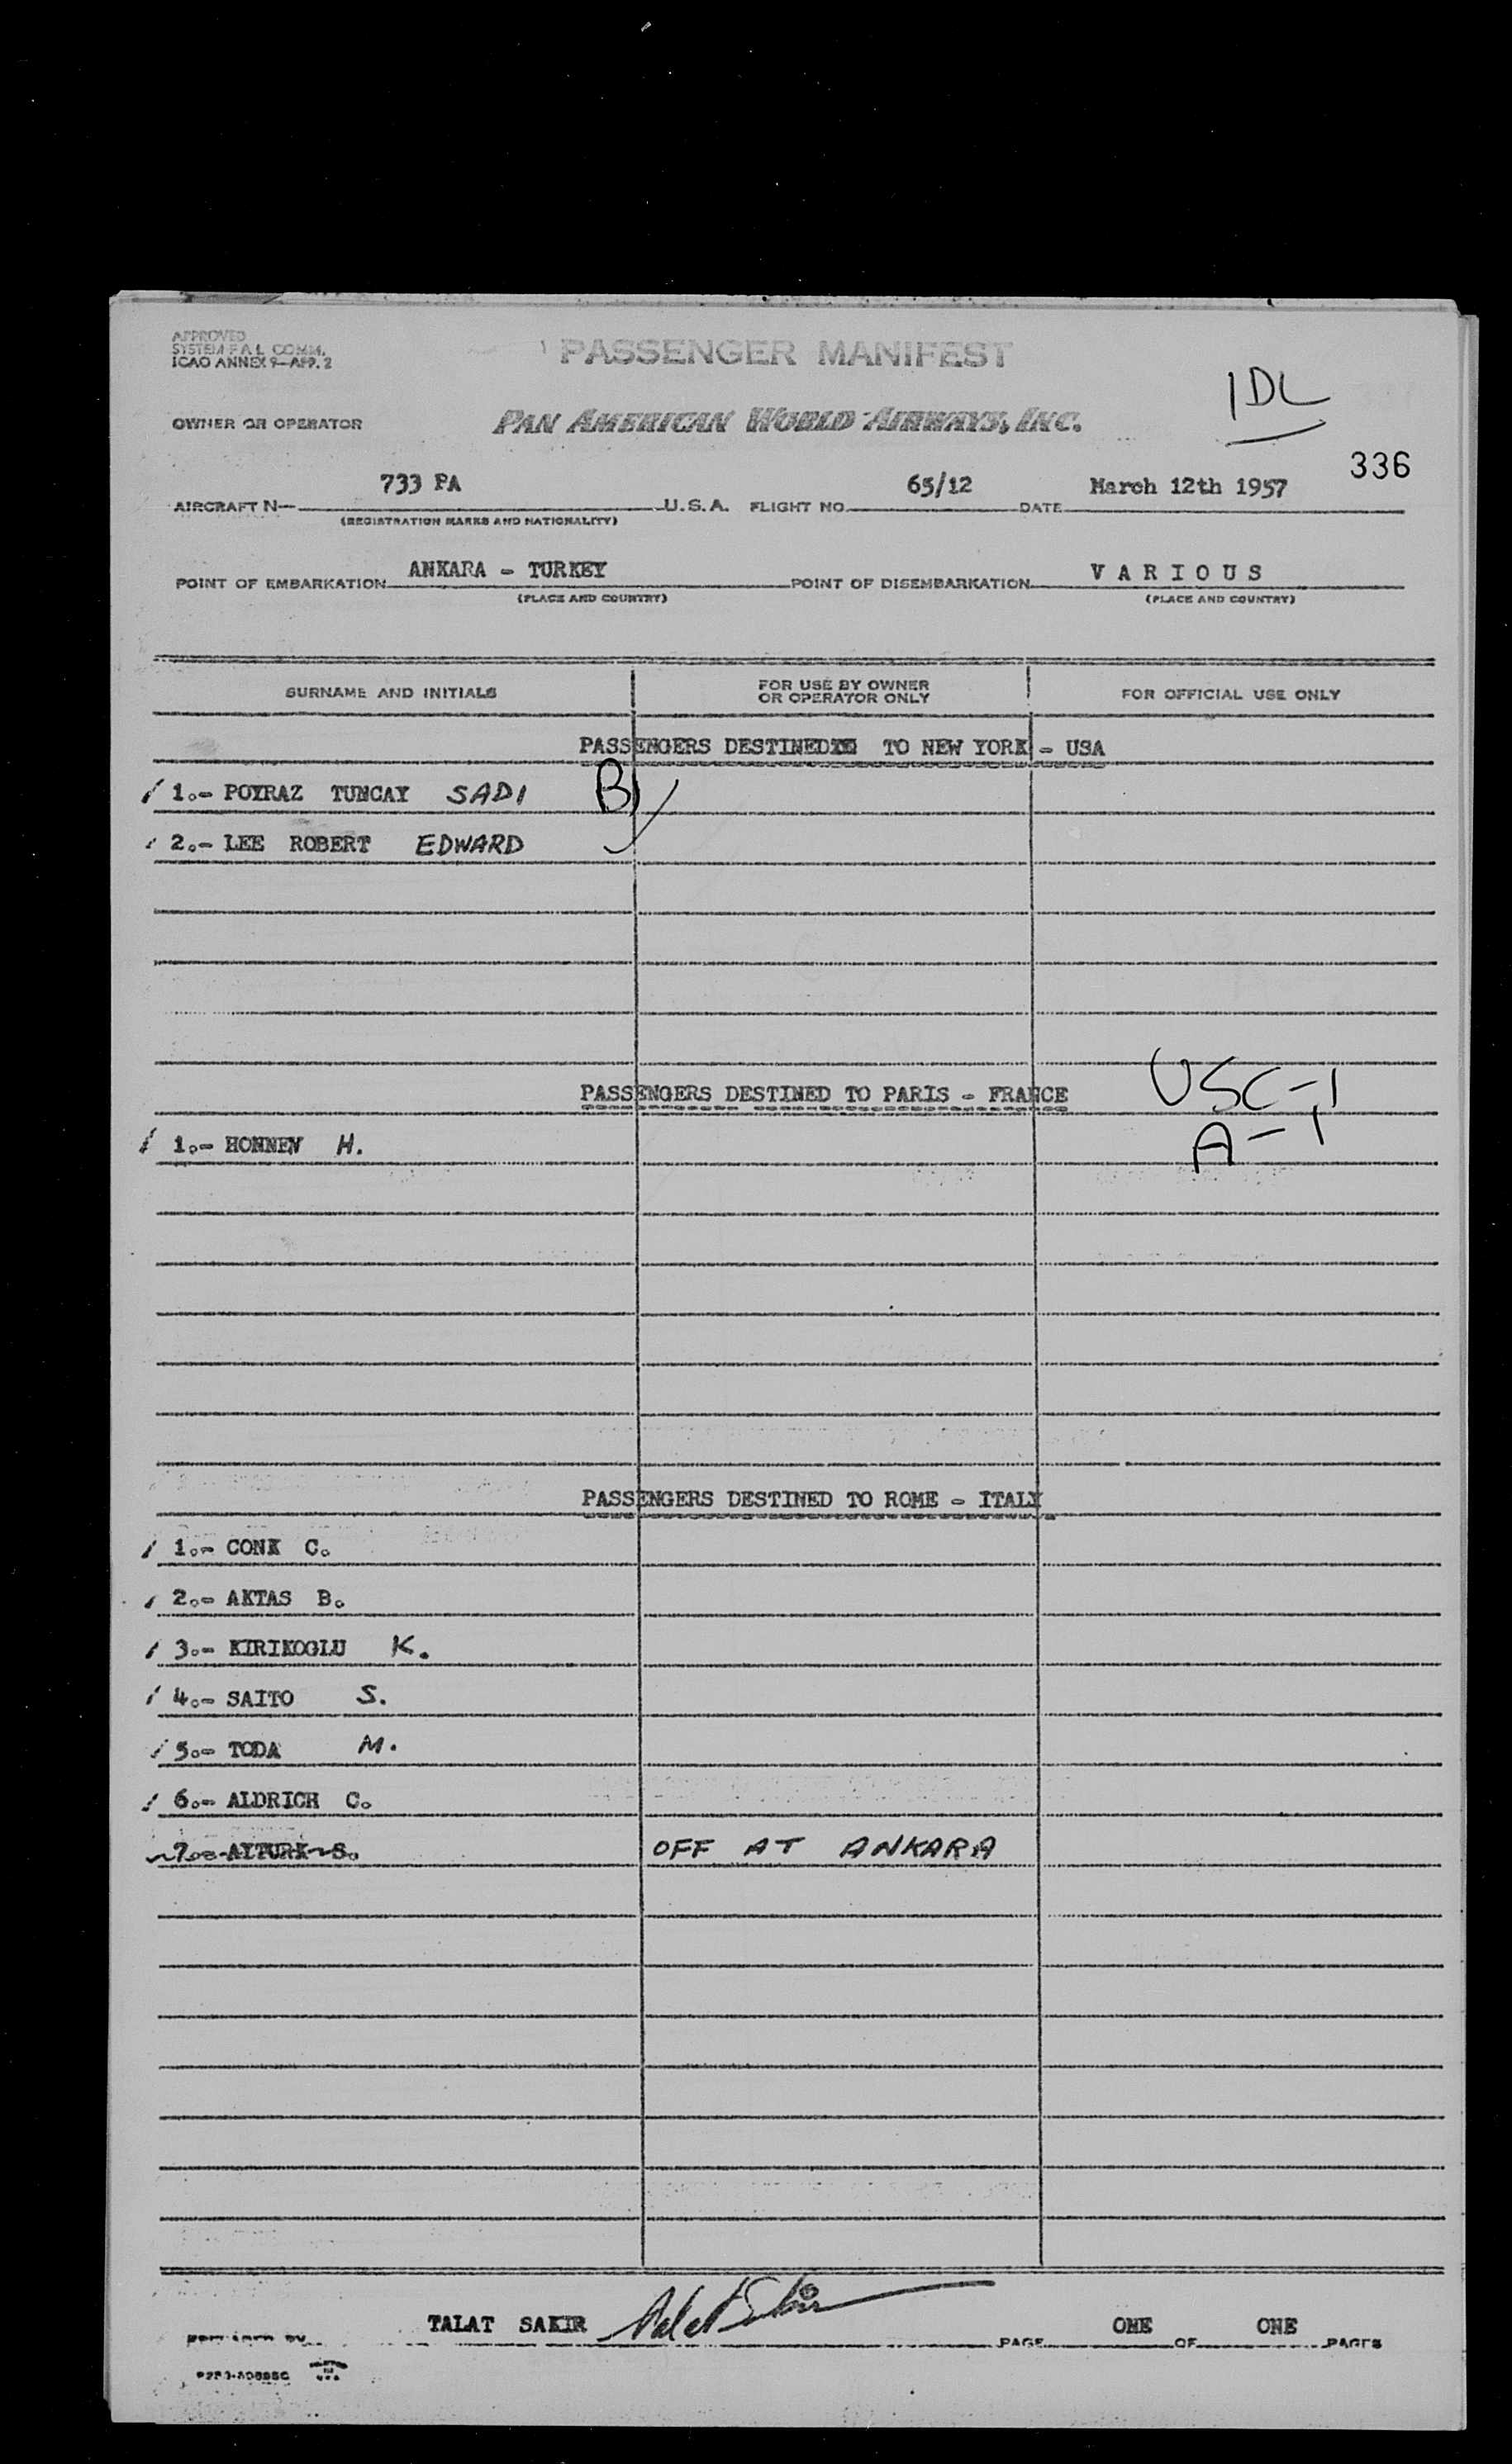 APPROVED
SYSTEM F A L COMM.
ICAO ANNEX 9—APP. 2
PASSENGER MANIFEST
IDL
OWNER OR OPERATOR PAN AMERICAN WORLD AIRWAYS, INC.
336
AIRCRAFT N— 733 PA U.S.A. FLIGHT NO. 65/12 DATE March 12th 1957
(REGISTRATION MARKS AND NATIONALITY)
POINT OF EMBARKATION ANKARA - TURKEY POINT OF DISEMBARKATION V A R I O U S
(PLACE AND COUNTRY) (PLACE AND COUNTRY)
SURNAME AND INITIALS FOR USE BY OWNER OR OPERATOR ONLY FOR OFFICIAL USE ONLY
PASSENGERS DESTINED TO NEW YORK - USA
1.- POYRAZ TUNCAY SADI B
2.- LEE ROBERT EDWARD
PASSENGERS DESTINED TO PARIS - FRANCE USC-1
A-1
1.- HONNEN H.
PASSENGERS DESTINED TO ROME - ITALY
1.- CONK C.
2.- AKTAS B.
3.- KIRIKOGLU K.
4.- SAITO S.
5.- TODA M.
6.- ALDRICH C.
7.- S. OFF AT ANKARA
TALAT SAKIR Talat Sakir PAGE ONE OF ONE PAGES
PREPARED BY